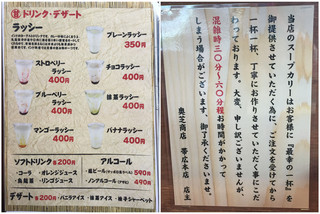 ドリンク・デザート
ラッシー
プレーンラッシー
350円
ストロベリーラッシー
400円
チョコラッシー
400円
ブルーベリーラッシー
400円
抹茶ラッシー
400円
マンゴーラッシー
400円
バナナラッシー
400円
ソフトドリンク 各200円
・コーラ ・オレンジジュース
・烏龍茶 ・リンゴジュース
アルコール
・生ビール 590円
・ノンアルコール 490円
デザート 各200円 ・バニラアイス ・抹茶アイス ・柚子シャーベット
当店のスープカリーはお客様に『最幸の一杯』を
御提供させていただく為に、ご注文を受けてから
一杯一杯、丁寧にお作りさせていただく事にこだ
わっております。大変、申し訳ございませんが、
混雑時三〇分〜六〇分程お時間がかかって
しまう場合がございます。御了承くださいませ。
奥芝商店 帯広本店 店主